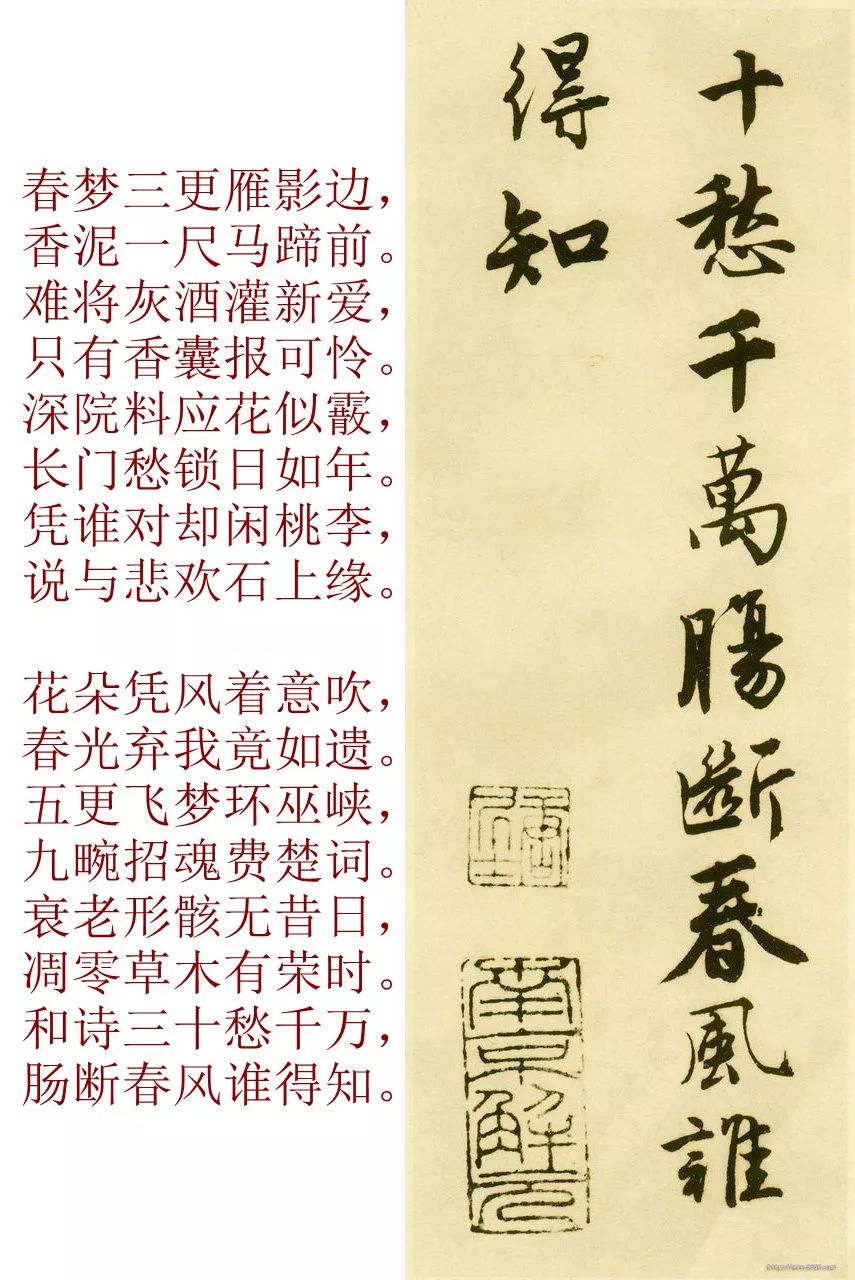 春梦三更雁影边，
香泥一尺马蹄前。
难将灰酒灌新爱，
只有香囊报可怜。
深院料应花似霰，
长门愁锁日如年。
凭谁对却闲桃李，
说与悲欢石上缘。
花朵凭风着意吹，
春光弃我竟如遗。
五更飞梦环巫峡，
九畹招魂费楚词。
衰老形骸无昔日，
凋零草木有荣时。
和诗三十愁千万，
肠断春风谁得知。
十愁千萬腸斷春風誰
得知
南京解元